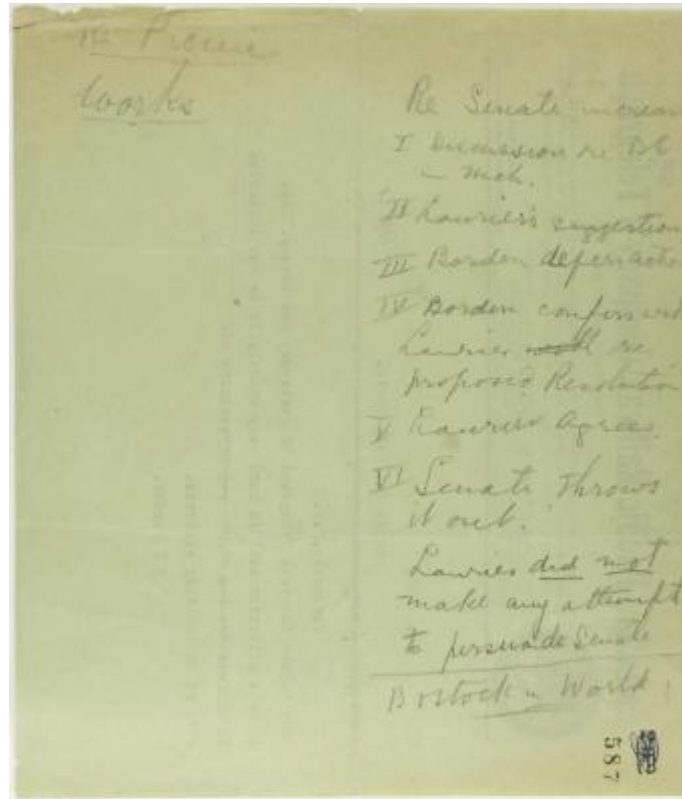 Re Picnic
Works
Re Senate increase
I Discussion re B.C.
in Mch.
II Laurier's suggestion
III Borden defers action
IV Borden confers with
Laurier re
proposed Resolution
V Laurier Agrees.
VI Senate throws
it out.
Laurier did not
make any attempt
to persuade Senate
Bostock in World
587